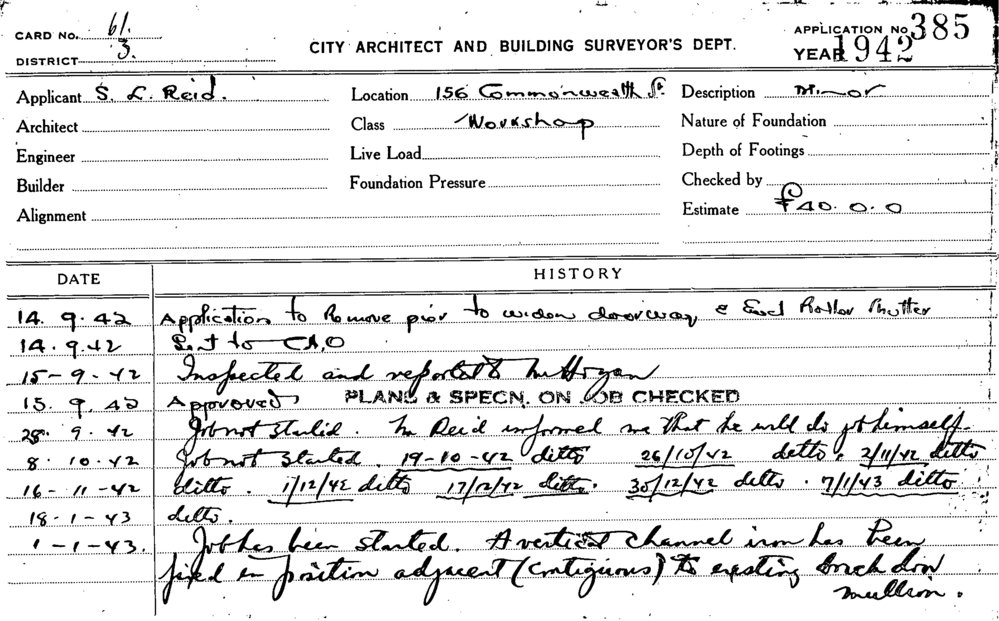 CARD No. 61.
DISTRICT 3.
CITY ARCHITECT AND BUILDING SURVEYOR'S DEPT.
APPLICATION No. 385
YEAR 1942
Applicant S. L. Reid. Location 156 Commonwealth St. Description Minor
Architect Class Workshop Nature of Foundation
Engineer Live Load Depth of Footings
Builder Foundation Pressure Checked by
Alignment Estimate £40.0.0
DATE HISTORY
14.9.42 Application to Remove pier to widen doorway & Roller Shutter
14.9.42 Sent to
15-9-42 Inspected and reported to Mr Hogan
15.9.42 Approved PLANS & SPECN. ON JOB CHECKED
28.9.42 Job not started. Mr Reid informed me that he will do job himself.
8.10.42 Job not started. 19-10-42 ditto 26/10/42 ditto, 2/11/42 ditto
16-11-42 ditto. 1/12/42 ditto 17/12/42 ditto. 30/12/42 ditto. 7/1/43 ditto
18-1-43 ditto.
1-1-43. Job has been started. A vertical channel iron has been
fixed in position adjacent (contiguous) to existing brick
mullion.